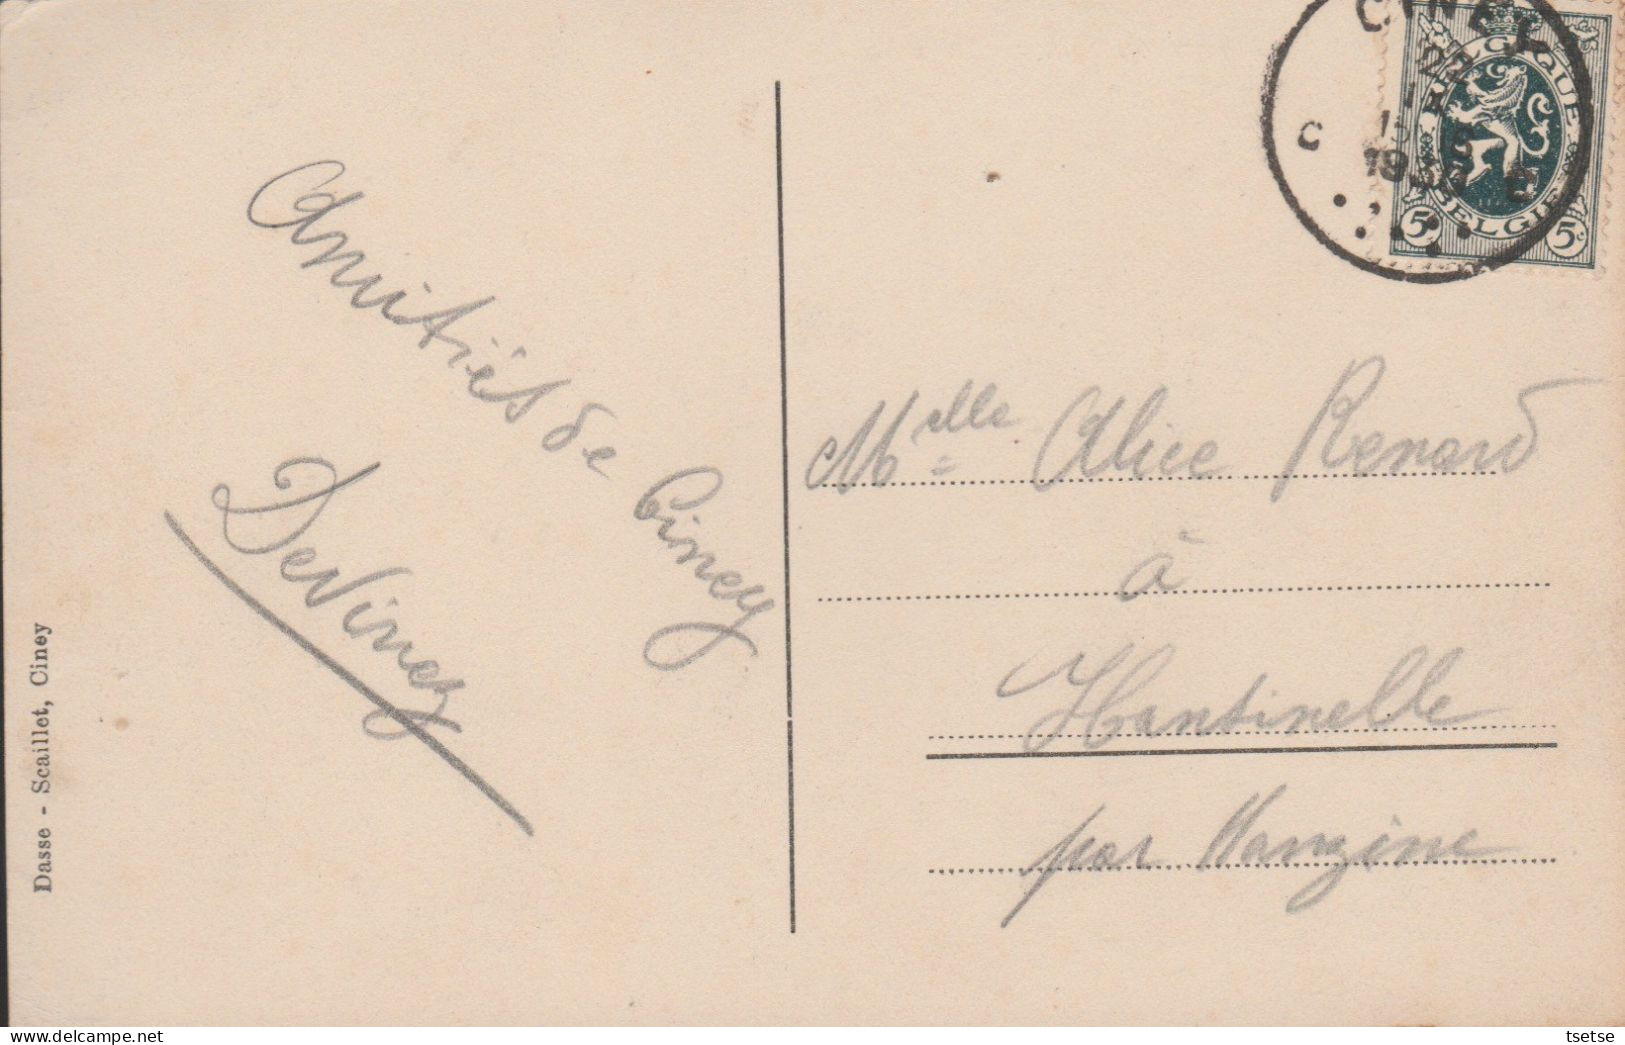 Amitiés de Ciney
Devinez
Dasse - Scaillet, Ciney
CINEY
22
C
BELGIQUE
BELGIE
5c
5c
Melle Alice Renard
à
Hantinelle
par Hanzine
tsetse